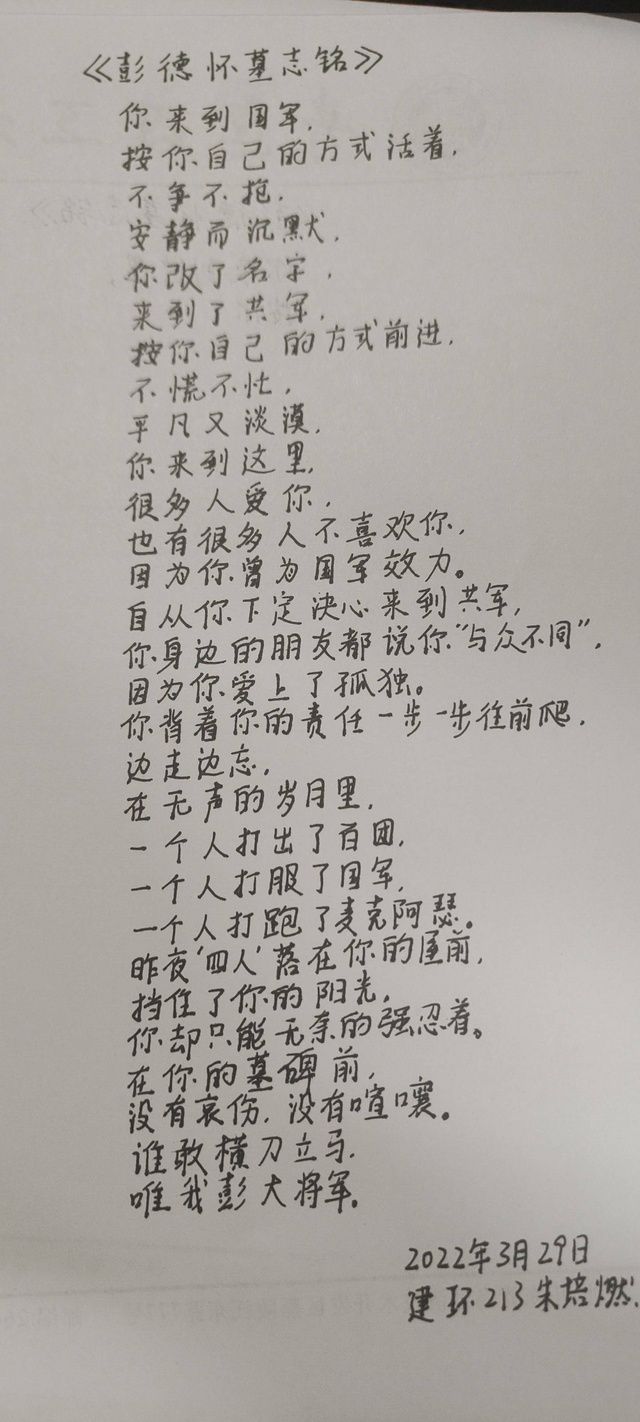 《彭德怀墓志铭》
你来到国军,
按你自己的方式活着,
不争不抱,
安静而沉默,
你改了名字,
来到了共军,
按你自己的方式前进,
不慌不忙,
平凡又淡漠,
你来到这里,
很多人爱你,
也有很多人不喜欢你,
因为你曾为国军效力。
自从你下定决心来到共军,
你身边的朋友都说你“与众不同”,
因为你爱上了孤独。
你背着你的责任一步一步往前爬,
边走边忘,
在无声的岁月里,
一个人打出了百团,
一个人打服了国军,
一个人打跑了麦克阿瑟。
昨夜‘四人’落在你的屋前,
挡住了你的阳光,
你却只能无奈的强忍着。
在你的墓碑前,
没有哀伤,没有喧嚷。
谁敢横刀立马,
唯我彭大将军。
2022年3月29日
建环213朱培燃.